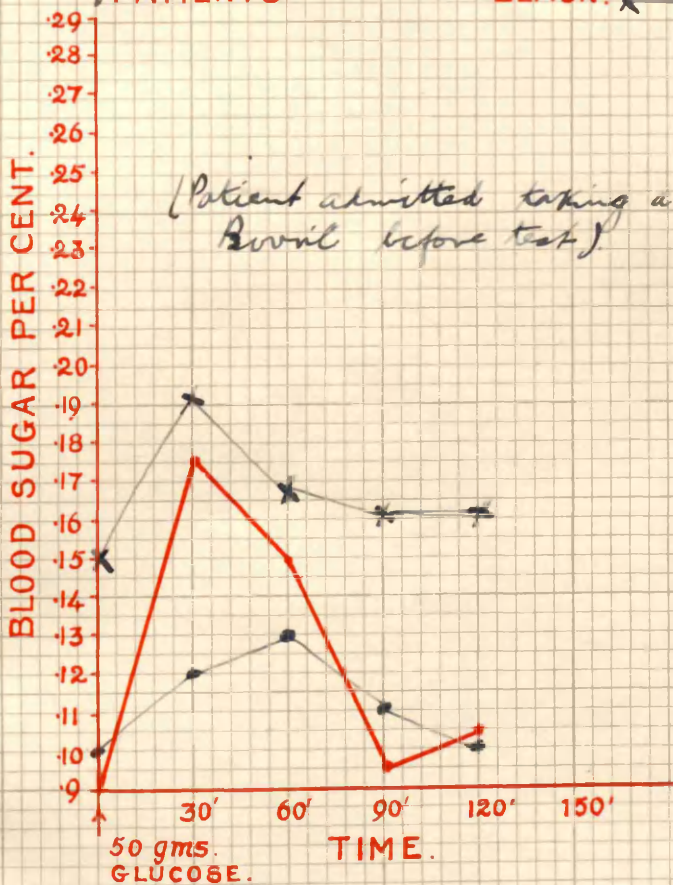 PATIENTS
BLACK. X
BLOOD SUGAR PER CENT.
.29
.28
.27
.26
.25
.24
.23
.22
.21
.20
.19
.18
.17
.16
.15
.14
.13
.12
.11
.10
.9
(Patient admitted taking a
Bovril before test).
30' 60' 90' 120' 150'
50 gms. TIME.
GLUCOSE.